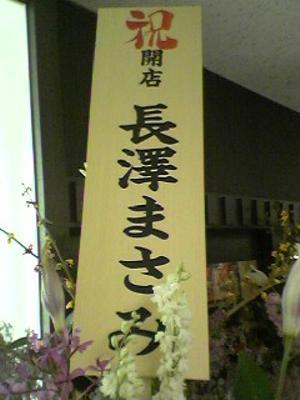 祝
開店
長澤まさみ